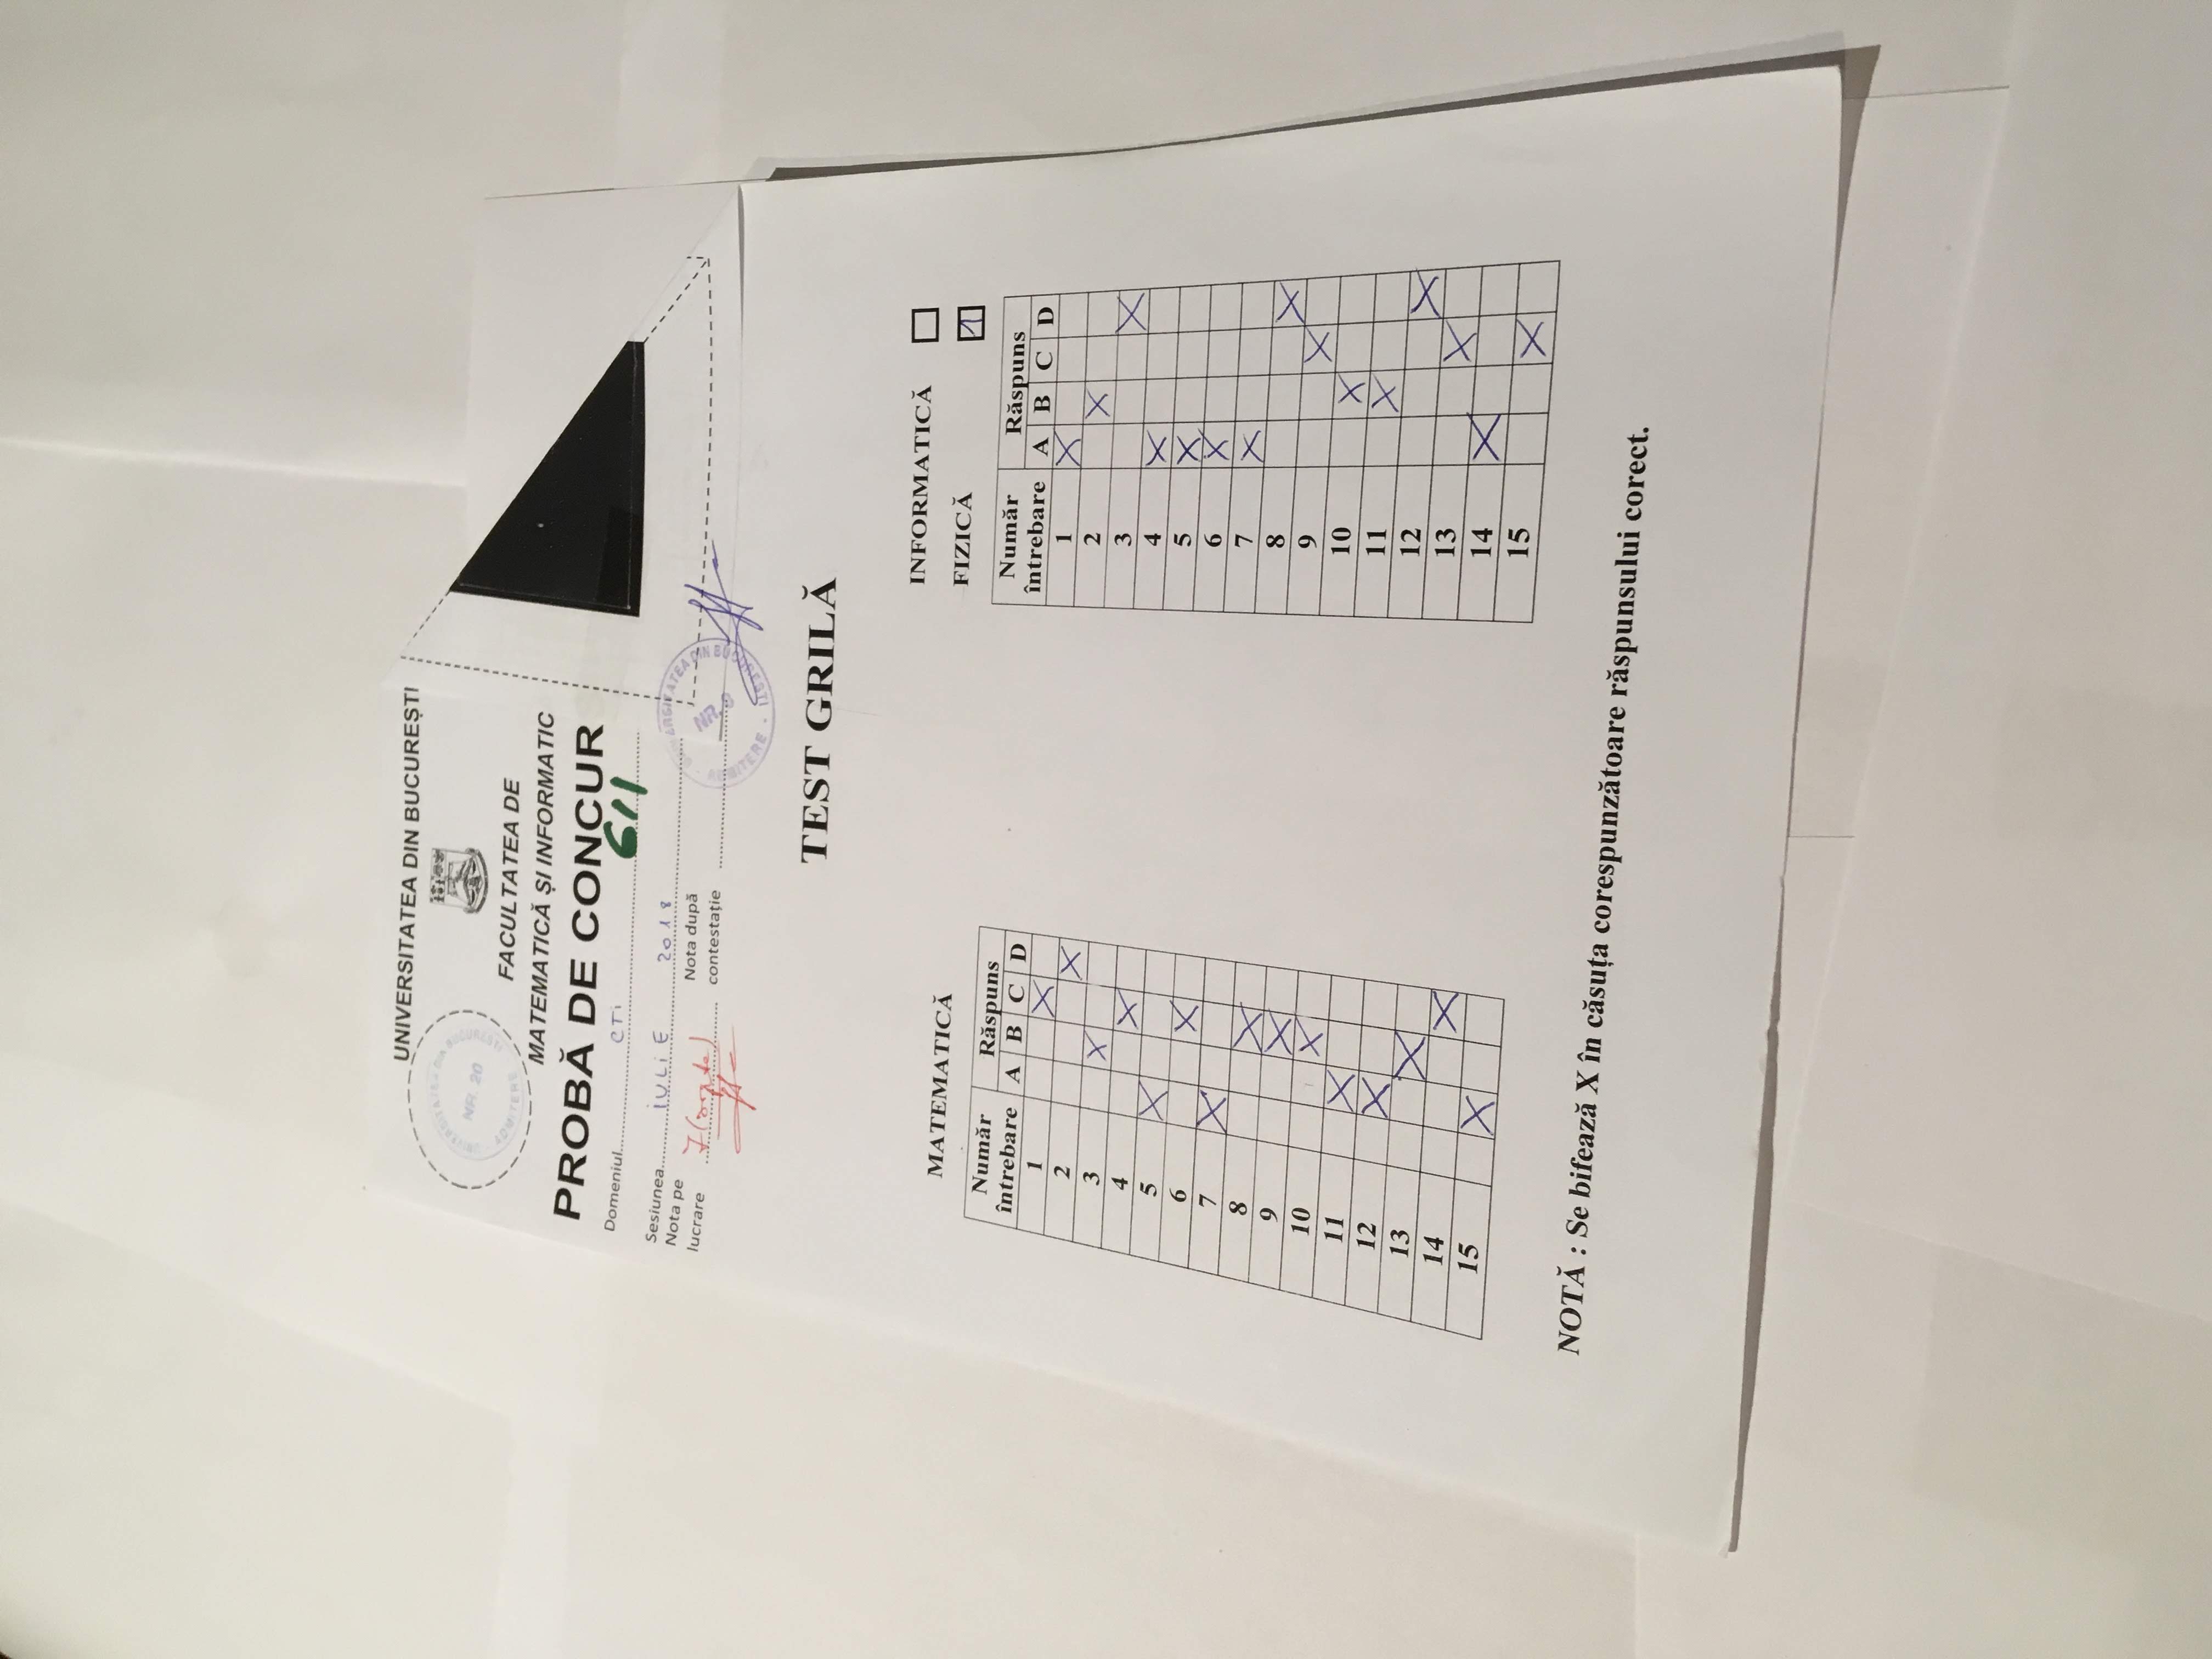 UNIVERSITATEA DIN BUCUREȘTI
UNIVERSITATEA DIN BUCUREȘTI
NR. 20
ADMITERE
FACULTATEA DE
MATEMATICĂ ȘI INFORMATIC
PROBĂ DE CONCUR
Domeniul CTi 611
Sesiunea iULiE 2018
Nota pe lucrare 7 (șapte)
Nota după contestație
NR. 9
ADMITERE
TEST GRILĂ
MATEMATICĂ
Număr întrebare Răspuns
A B C D
1 X
2 X
3 X
4 X
5 X
6 X
7 X
8 X
9 X
10 X
11 X
12 X
13 X
14 X
15 X
INFORMATICĂ
FIZICĂ 1
Număr întrebare Răspuns
A B C D
1 X
2 X
3 X
4 X
5 X
6 X
7 X
8 X
9 X
10 X
11 X
12 X
13 X
14 X
15 X
NOTĂ : Se bifează X în căsuța corespunzătoare răspunsului corect.